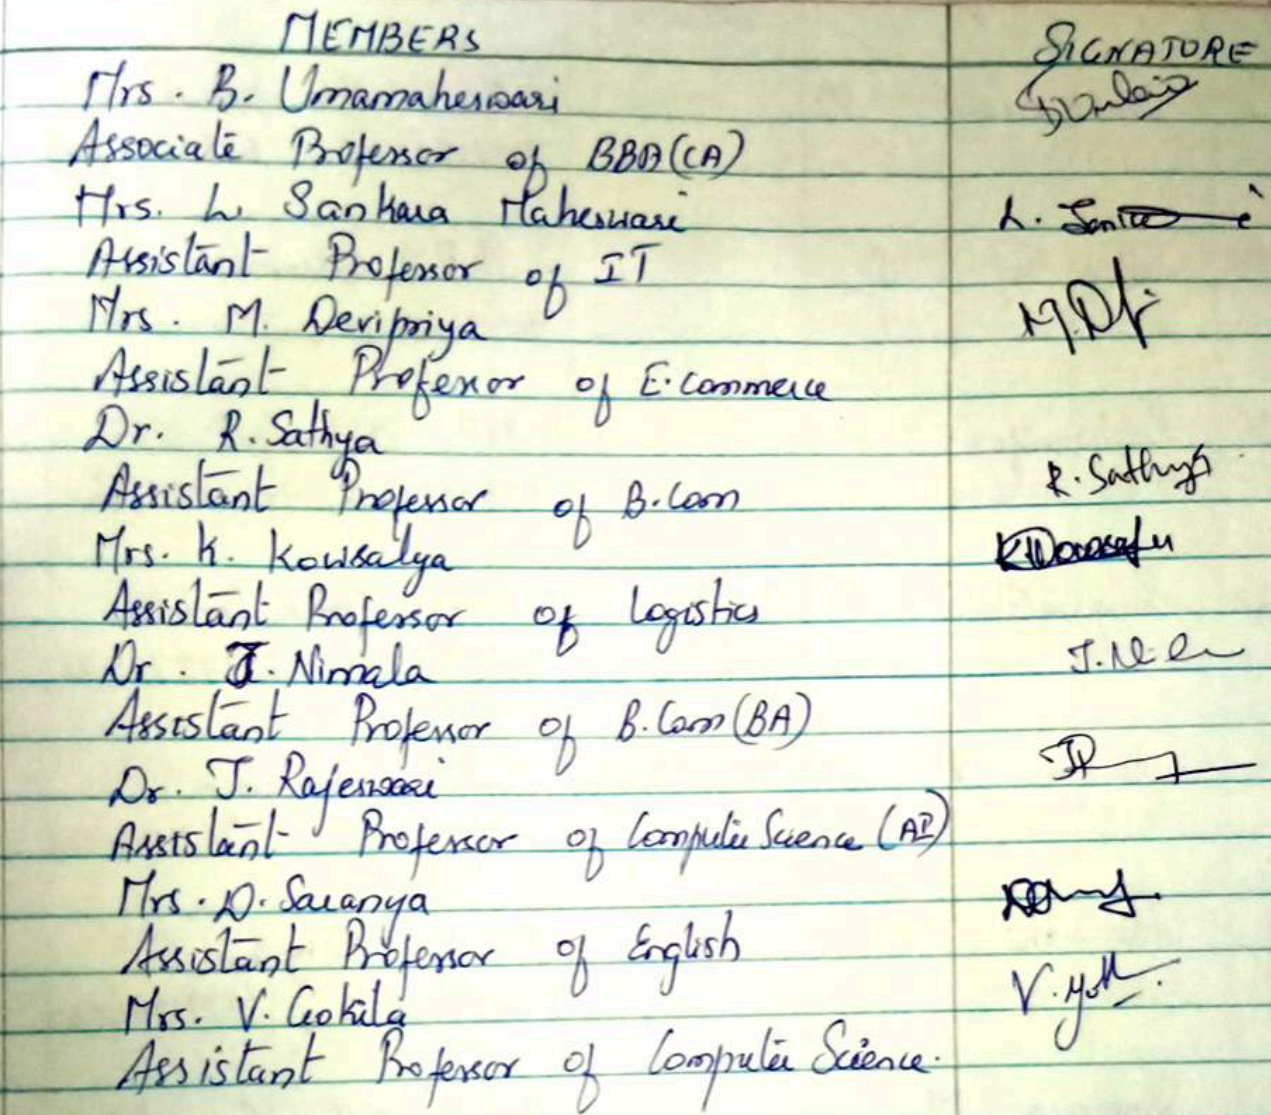 MEMBERS SIGNATURE
Mrs. B. Umamaheswari
Associate Professor of BBA(CA)
Mrs. L. Sankara Maheswari L.
Assistant Professor of IT
Mrs. M. Devipriya M.D
Assistant Professor of E.Commerce
Dr. R. Sathya
Assistant Professor of B.Com R. Sathya
Mrs. K. Kowsalya
Assistant Professor of Logistics
Dr. J. Nirmala J.
Assistant Professor of B.Com (BA)
Dr. J. Rajeswari
Assistant Professor of Computer Science (AI)
Mrs. D. Saranya
Assistant Professor of English
Mrs. V. Gokila V.
Assistant Professor of Computer Science.